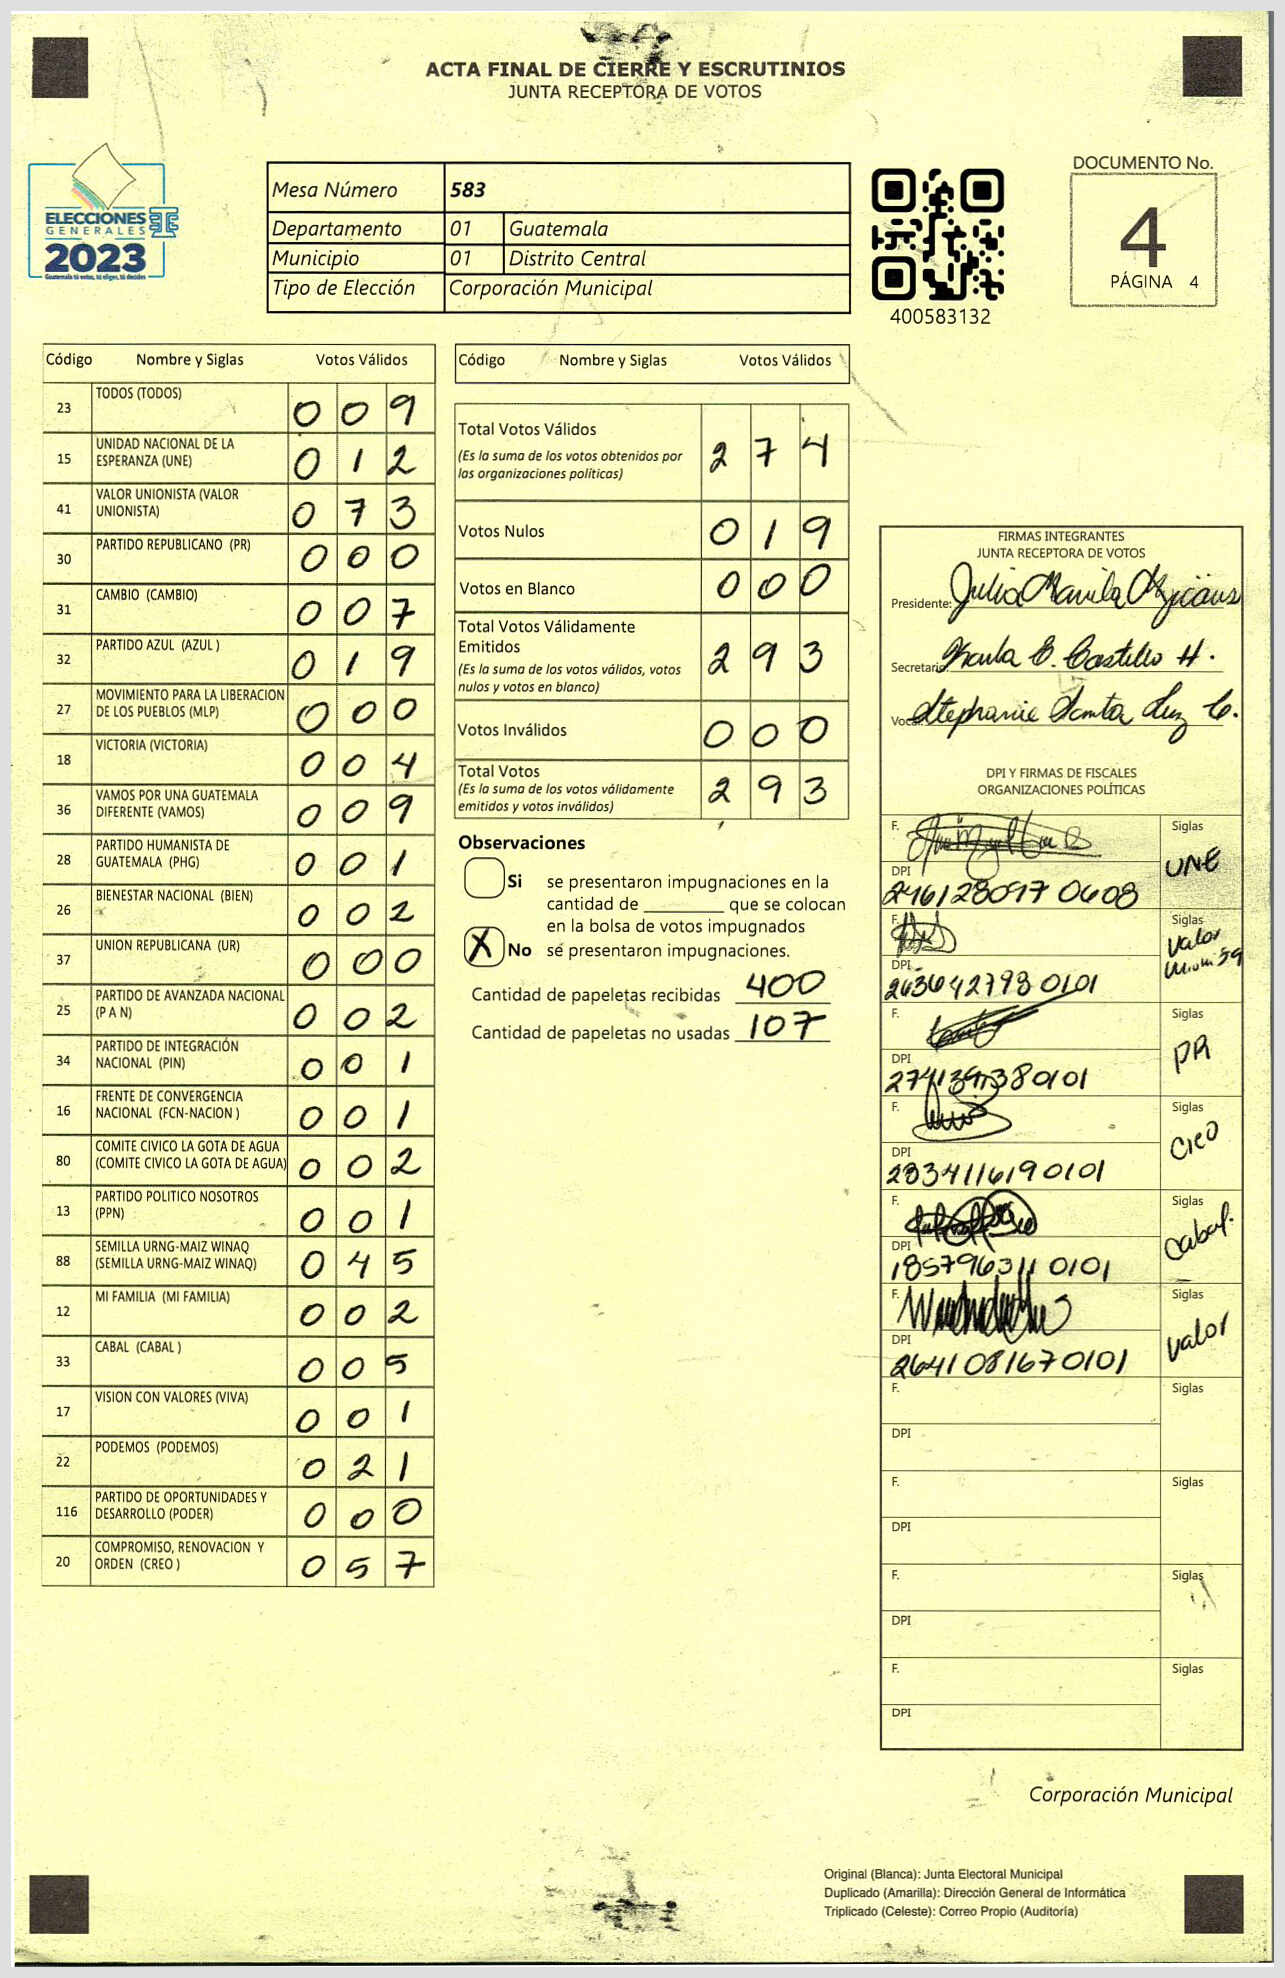 ACTA FINAL DE CIERRE Y ESCRUTINIOS
JUNTA RECEPTORA DE VOTOS
ELECCIONES
GENERALES
2023
Guatemala tú votas, tú eliges, tú decides
Mesa Número 583
Departamento 01 Guatemala
Municipio 01 Distrito Central
Tipo de Elección Corporación Municipal
400583132
DOCUMENTO No.
4
PÁGINA 4
Código Nombre y Siglas Votos Válidos
23 TODOS (TODOS) 0 0 9
15 UNIDAD NACIONAL DE LA
ESPERANZA (UNE) 0 1 2
41 VALOR UNIONISTA (VALOR
UNIONISTA) 0 7 3
30 PARTIDO REPUBLICANO (PR) 0 0 0
31 CAMBIO (CAMBIO) 0 0 7
32 PARTIDO AZUL (AZUL ) 0 1 9
27 MOVIMIENTO PARA LA LIBERACION
DE LOS PUEBLOS (MLP) 0 0 0
18 VICTORIA (VICTORIA) 0 0 4
36 VAMOS POR UNA GUATEMALA
DIFERENTE (VAMOS) 0 0 9
28 PARTIDO HUMANISTA DE
GUATEMALA (PHG) 0 0 1
26 BIENESTAR NACIONAL (BIEN) 0 0 2
37 UNION REPUBLICANA (UR) 0 0 0
25 PARTIDO DE AVANZADA NACIONAL
(P A N) 0 0 2
34 PARTIDO DE INTEGRACIÓN
NACIONAL (PIN) 0 0 1
16 FRENTE DE CONVERGENCIA
NACIONAL (FCN-NACION ) 0 0 1
80 COMITE CIVICO LA GOTA DE AGUA
(COMITE CIVICO LA GOTA DE AGUA) 0 0 2
13 PARTIDO POLITICO NOSOTROS
(PPN) 0 0 1
88 SEMILLA URNG-MAIZ WINAQ
(SEMILLA URNG-MAIZ WINAQ) 0 4 5
12 MI FAMILIA (MI FAMILIA) 0 0 2
33 CABAL (CABAL ) 0 0 5
17 VISION CON VALORES (VIVA) 0 0 1
22 PODEMOS (PODEMOS) 0 2 1
116 PARTIDO DE OPORTUNIDADES Y
DESARROLLO (PODER) 0 0 0
20 COMPROMISO, RENOVACION Y
ORDEN (CREO ) 0 5 7
Código Nombre y Siglas Votos Válidos
Total Votos Válidos 2 7 4
(Es la suma de los votos obtenidos por
las organizaciones políticas)
Votos Nulos 0 1 9
Votos en Blanco 0 0 0
Total Votos Válidamente
Emitidos 2 9 3
(Es la suma de los votos válidos, votos
nulos y votos en blanco)
Votos Inválidos 0 0 0
Total Votos 2 9 3
(Es la suma de los votos válidamente
emitidos y votos inválidos)
Observaciones
Si se presentaron impugnaciones en la
cantidad de ________ que se colocan
en la bolsa de votos impugnados
X No se presentaron impugnaciones.
Cantidad de papeletas recibidas 400
Cantidad de papeletas no usadas 107
FIRMAS INTEGRANTES
JUNTA RECEPTORA DE VOTOS
Presidente: Julia
Secretario: C. Castillo H.
Vocal: Stephanie Santa Luz C.
DPI Y FIRMAS DE FISCALES
ORGANIZACIONES POLÍTICAS
F. Siglas
UNE
DPI
2461280970608
F. Siglas
Valor
DPI
2636427980101
F. Siglas
PR
DPI
F. Siglas
Creo
DPI
2334116190101
F. Siglas
Cabal.
DPI
1857963110101
F. Siglas
Valor
DPI
2641081670101
F. Siglas
DPI
F. Siglas
DPI
F. Siglas
DPI
F. Siglas
DPI
Corporación Municipal
Original (Blanca): Junta Electoral Municipal
Duplicado (Amarilla): Dirección General de Informática
Triplicado (Celeste): Correo Propio (Auditoría)